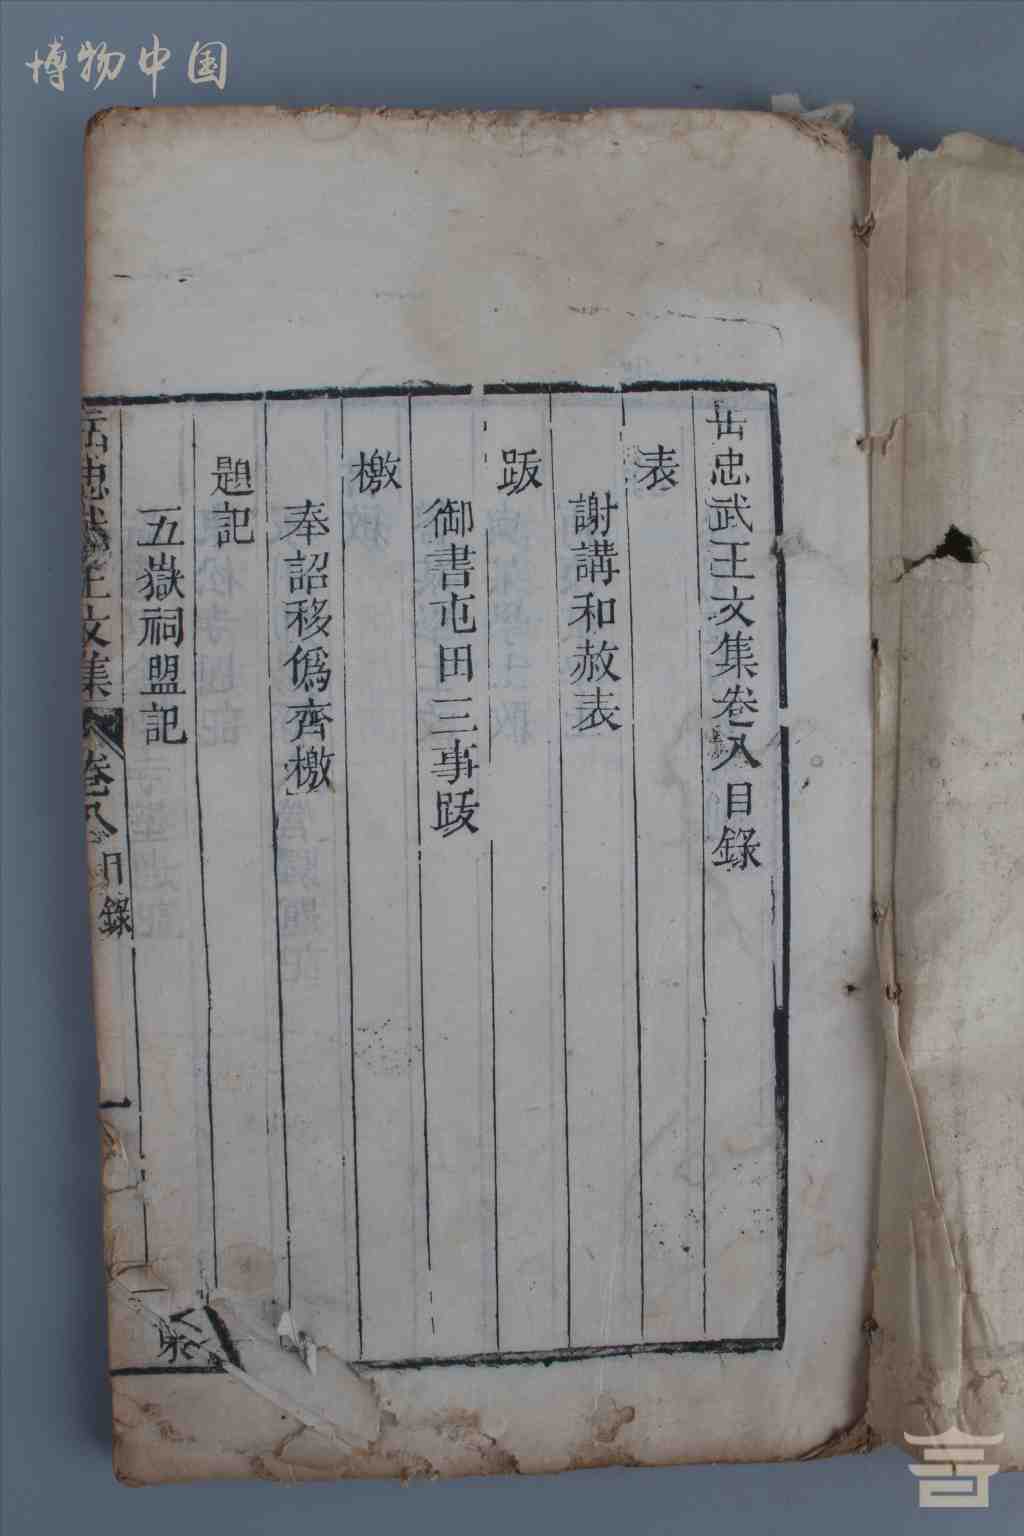 博物中国
岳忠武王文集卷八目錄
表
謝講和赦表
跋
御書屯田三事跋
檄
奉詔移僞齊檄
題記
五嶽祠盟記
岳忠武王文集
卷八目錄
一